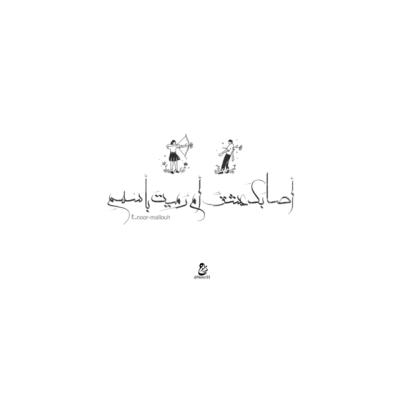 أصابك عشق أم رميت بأسهم
t.noor-mallouh